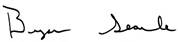 Bryan Searle